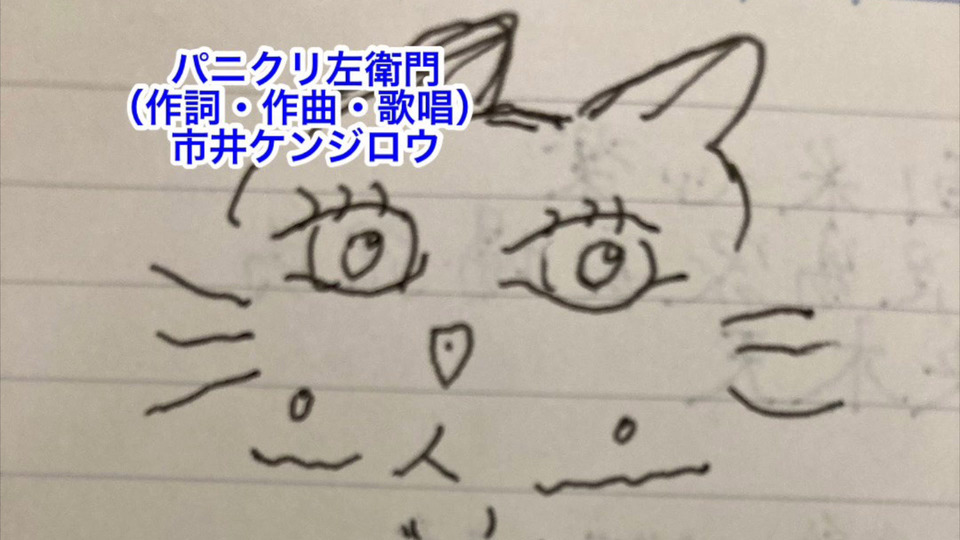 パニクリ左衛門
（作詞・作曲・歌唱）
市井ケンジロウ